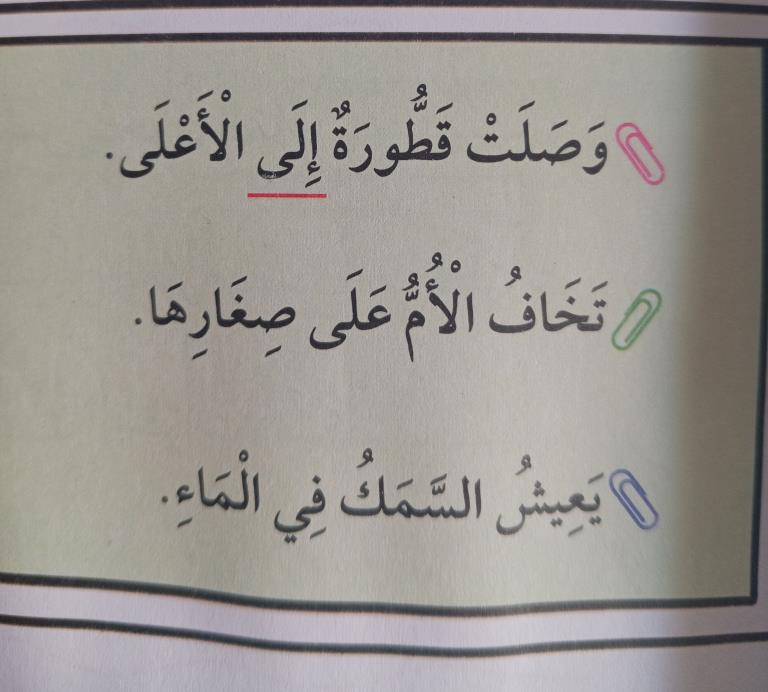 وَصَلَتْ قَطُّورَةٌ إِلَى الْأَعْلَى.
تَخَافُ الْأُمُّ عَلَى صِغَارِهَا.
يَعِيشُ السَّمَكُ فِي الْمَاءِ.